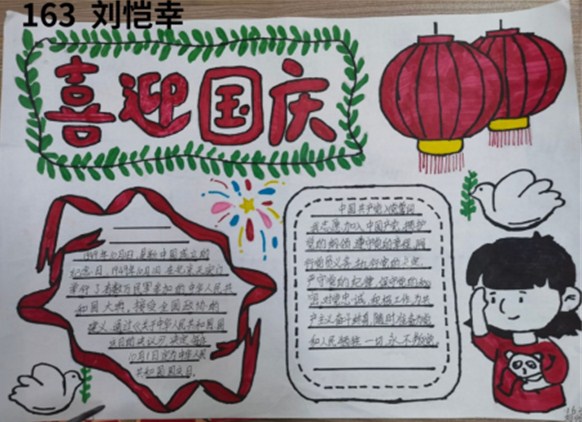 163 刘恺幸
喜迎国庆
1949年10月1日,是新中国成立的
纪念日。1949年10月1日,在北京天安门
举行了有数万民军参加的中华人民共
和国大典。接受全国政协的
建议,通过《关于中华人民共和国国
庆日的决议》,决定每年
10月1日定为中华人民
共和国国庆日。
中国共产党入党誓词
我志愿加入中国共产党,拥护
党的纲领,遵守党的章程,履
行党员义务,执行党的决定,
严守党的纪律,保守党的秘
密,对党忠诚,积极工作,为共
产主义奋斗终身,随时准备为党
和人民牺牲一切,永不叛党。